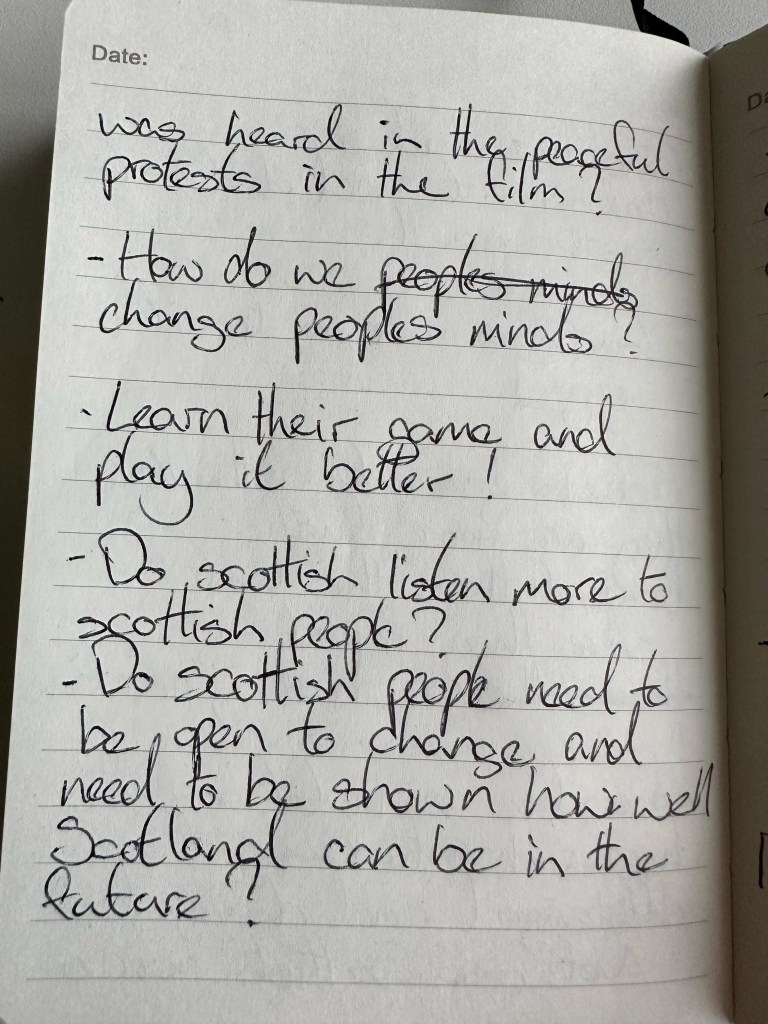 Date:
was heard in the peaceful
protests in the film?
- How do we peoples minds
change peoples minds?
. Learn their game and
play it better!
- Do scottish listen more to
scottish people?
- Do scottish people need to
be open to change and
need to be shown how well
Scotland can be in the
future?